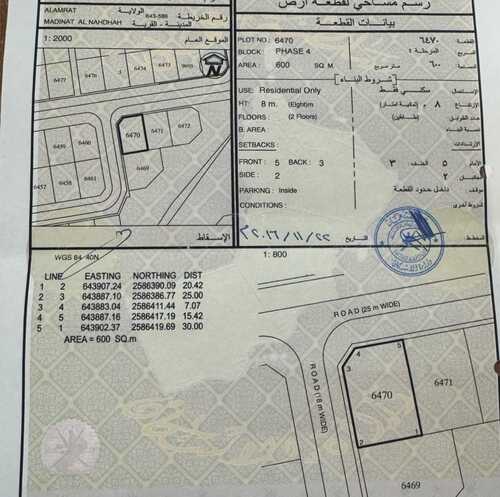 رسم مساحي لقطعة ارض
ALAMRAT
الولاية
MADINAT AL NAHDHAH
643-586
رقم الخريطة
المدينة - القرية
بيانات القطعة
1: 2000
الموقع العام
PLOT NO.: 6470
٦٤٧٠
BLOCK : PHASE 4
المرحلة ٤
AREA : 600 SQ. M
٦٠٠
شروط البناء
USE: Residential Only
سكني فقط
الإستعمال
HT: 8 m. (Eight)m
٨ م.
FLOORS : (2 Floors)
(طابقين)
B. AREA :
SETBACKS
FRONT : 5 BACK : 3
الأمام ٥ الخلف ٣
SIDE : 2
٢
PARKING : Inside
داخل حدود القطعة
موقف
CONDITIONS :
شروط أخرى
6477
6476
6474
6473
6470
6471
6472
6469
6459
6460
6457
6458
6461
الإسقاط
التاريخ
٢٠١٦/١١/٢٢
المخطط
WGS 84 40N
1 : 800
LINE EASTING NORTHING DIST
1 2 643907.24 2586390.09 20.42
2 3 643887.10 2586386.77 25.00
3 4 643883.04 2586411.44 7.07
4 5 643887.16 2586417.19 15.42
5 1 643902.37 2586419.69 30.00
AREA = 600 SQ.m
ROAD (25 m WIDE)
ROAD (18 m WIDE)
4
5
3
6470
6471
2
1
6469